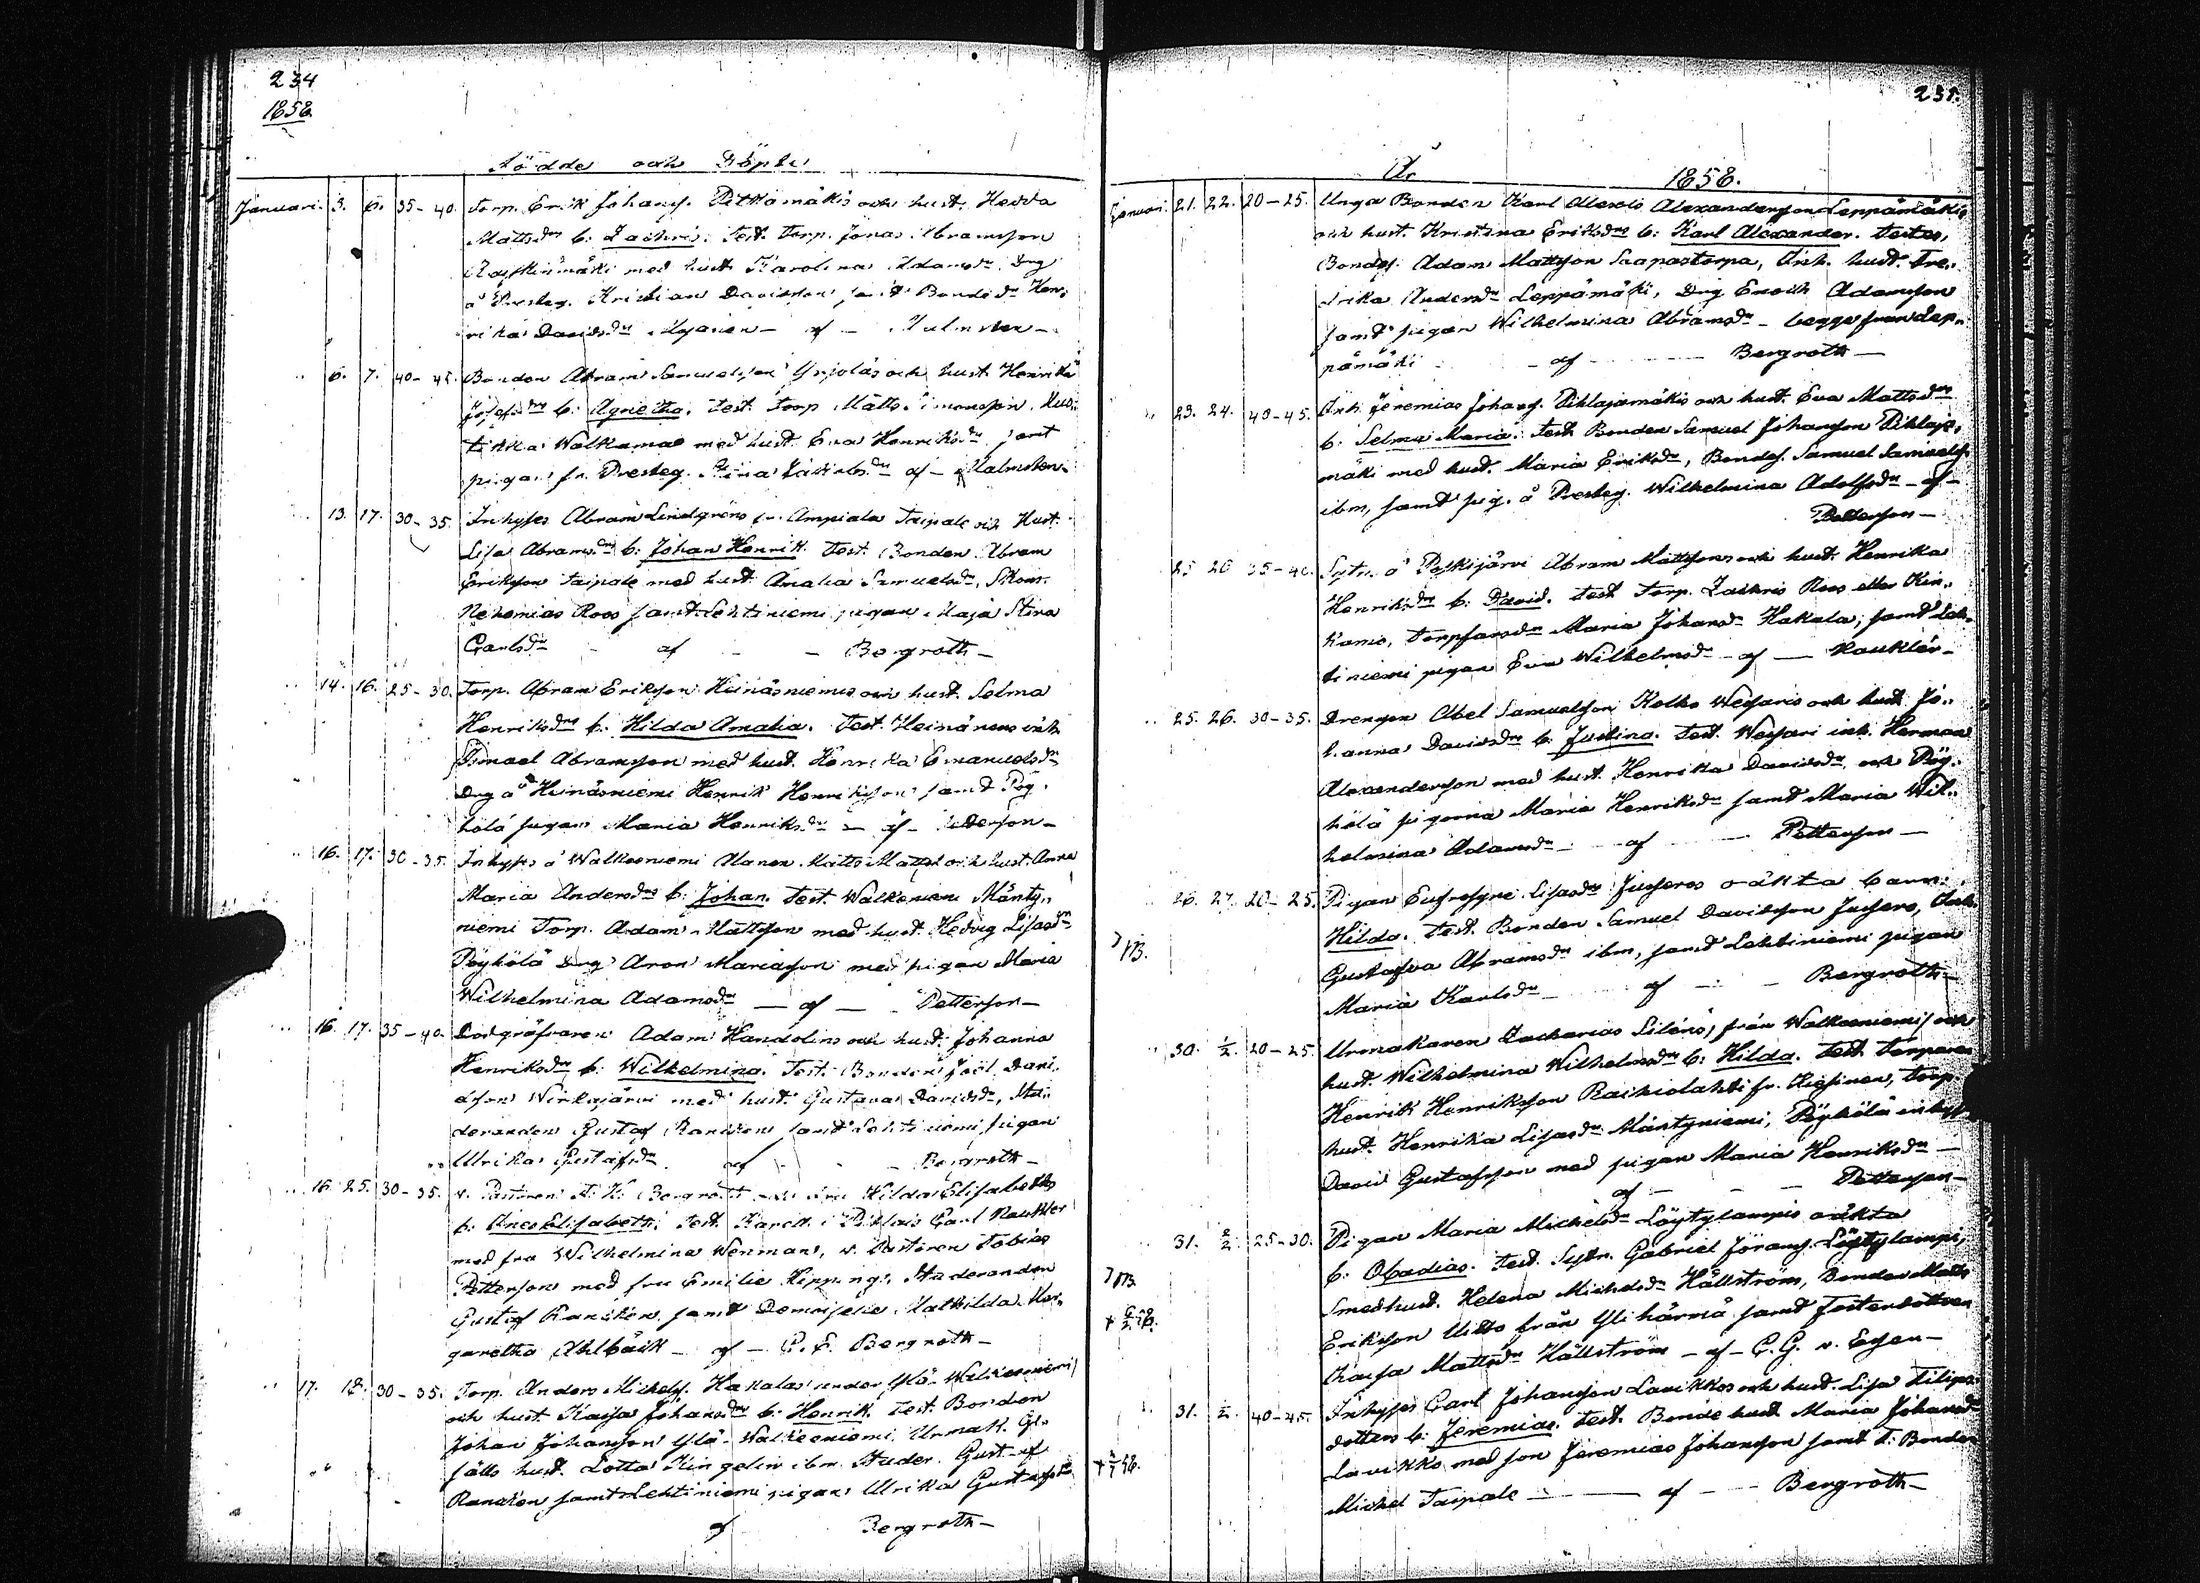 234
1858
Födde och Döpte
Januari. 3. 6. 35-40. Torp. Erik Johanss. Pitkämäkis och hust. Hedda
Mattsdrs b: Zachris. Test. Torp. Jonas Abramsson
med hust. Karolina Adamsdr. Drg
å Presteg. Kristian Davidsson samt Bondedr. Hen-
rika Davidsdr — af — Malmsten —
6. 7. 40-45. Bonden Abram Samuelsson Yrjölas och hust. Henrika
Josefsdrs b: Agnetha. Test. Torp Matts Simonsson
Walkama med hust. Eva Henriksdr samt
pigan fr. Presteg. Stina Jakobsdr — af — Malmsten.
13. 17. 30-35. Inhyses Abram Lindgréns fr. Ampiala Taipale och Hust.
Lisa Abramsdrs b: Johan Henrik. Test. Bonden Abram
Eriksson Taipale med hust. Amalia Samuelsdr, Skom.
Nehemias Roos samt Lehtiniemi pigan Maja Stina
Carlsdr - af - - Bergroth —
14. 16. 25-30. Torp. Abram Eriksson Heinäsniemis och hust. Selma
Henriksdrs b: Hilda Amalia. Test. Heinänens inh.
Ismael Abramsson med hust. Henrika Emanuelsdr
Drg å Heinäsniemi Henrik Henriksson samt Pöy-
hölä pigan Maria Henriksdr — af — Petterson —
16. 17. 30-35. Inhyses å Walkeeniemi Alanen Matts Mattss och hust. Anna
Maria Andersdrs b: Johan. Test. Walkeniemi Mänty-
niemi Torp. Adam Mattsson med hust. Hedvig Lisasdr
Pöyhölä Drg Aron Mariasson med pigan Maria
Wilhelmina Adamsdr — af — Petterson —
16. 17. 35-40. Dodgräfvaren Adam Handolins och hust. Johanna
Henriksdrs b: Wilhelmina. Test. Bonden Joel Davi-
dson Wirkajärvi med hust. Gustava Davidsdr, Stu-
deranden Gustaf Rancken samt Lehtiniemi pigan
Ulrika Gustafsdr af - - Bergroth —
16. 25. 30-35. v. Pastoren A. K. Bergroth och fru Hilda Elisabeths
b: Ines Elisabeth. Test. Carl Rauklér
med fru Wilhelmina Wenman, v. Pastoren Tobias
Petterson med fru Emilie Hipping, Studeranden
Gustaf Rancken samt Demoiselle Mathilda Mar-
garetha Ahlbäck — af — C. E. Bergroth —
17. 18. 30-35. Torp. Anders Michelss. Hakalas under Ylä-Walkeeniemi
och hust. Kaisa Johansdrs b: Henrik. Test. Bonden
Johan Johansson Ylä-Walkeeniemi, Urmak. Ge-
sälls hust. Lotta Kingelin ibm. Studer. Gustaf
Rancken samt Lehtiniemi pigan Ulrika Gustafsdr
af Bergroth —
235.
År 1858.
Januari. 21. 22. 20-25. Unga Bonden Karl Alexis Alexandersson Leppämäkis
och hust. Kristina Eriksdrs b: Karl Alexander. Testes,
Bondes. Adam Mattsson Saapastorpa, Inh. hust. Fre-
drika Andersdr Leppämäki, Drg Enoch Adamsson
samt pigan Wilhelmina Abramsdr - begge från Lep-
pämäki - af - Bergroth —
23. 24. 40-45. Inh. Jeremias Johanss. Pihlajamäkis och hust. Eva Mattsdrs
b: Selma Maria. Test. Bonden Samuel Johansson Pihlaja-
mäki med hust. Maria Eriksdr, Bondes. Samuel Samuelss.
ibm, samt pig. å Presteg. Wilhelmina Adolfsdr — af —
Petterson —
25 26 35-40. Sytn. å Poikijärvi Abram Mattssons och hust. Henrika
Henriksdrs b: David. Test. Torp. Zachris Roos eller Kin-
kamo, Torparedr Maria Johansdr Hakala, samt Leh-
tiniemi pigan Eva Wilhelmsdr — af — Rauklér —
25. 26. 30-35. Drengen Abel Samuelsson Kolho Wessaris och hust. Jo-
hanna Davidsdrs b: Justina. Test. Wessari inh. Herman
Alexandersson med hust. Henrika Davidsdr och Pöy-
hölä pigorna Maria Henriksdr samt Maria Wil-
helmina Adamsdr — af — Petterson —
26. 27. 20-25. Pigan Eufrosyne Lisasdrs Jussero oäkta barn:
Hilda. Test. Bonden Samuel Davidsson Jussero, Inh.
NB. Gustafva Abramsdr ibm, samt Lehtiniemi pigan
Maria Karlsdr — af — Bergroth —
30. 1/2. 20-25. Urmakaren Zacharias Siléns, från Walkeeniemi, och
hust. Wilhelmina Wilhelmsdrs b: Hilda. Test. Torparen
Henrik Henriksson Raihiolahti fr. Kissinen, Torp.
hust. Henrika Lisasdr Mäntyniemi, Pöyhölä inhyss.
David Gustafsson med pigan Maria Henriksdr —
af — - - Petterson —
31. 2/2. 25-30. Pigan Maria Michelsdr Löytylampis oäkta
NB. b: Obadias. Test. Sytn. Gabriel Göranss. Löytylampi,
Smedhust. Helena Michelsdr Hällström, Bonden Matts
Eriksson Uitto från Yli härmä samt fosterdottren
Kaisa Mattsdr Hällström — af — C. G. v. Essen —
31. 40-45. Inhyses Carl Johansson Lavikkos och hust. Lisa Filips-
dotters b: Jeremias. Test. Bonde hust. Maria Johansdr
Lavikko med son Jeremias Johansson samt d. Bonden
Michel Taipale — af — Bergroth —